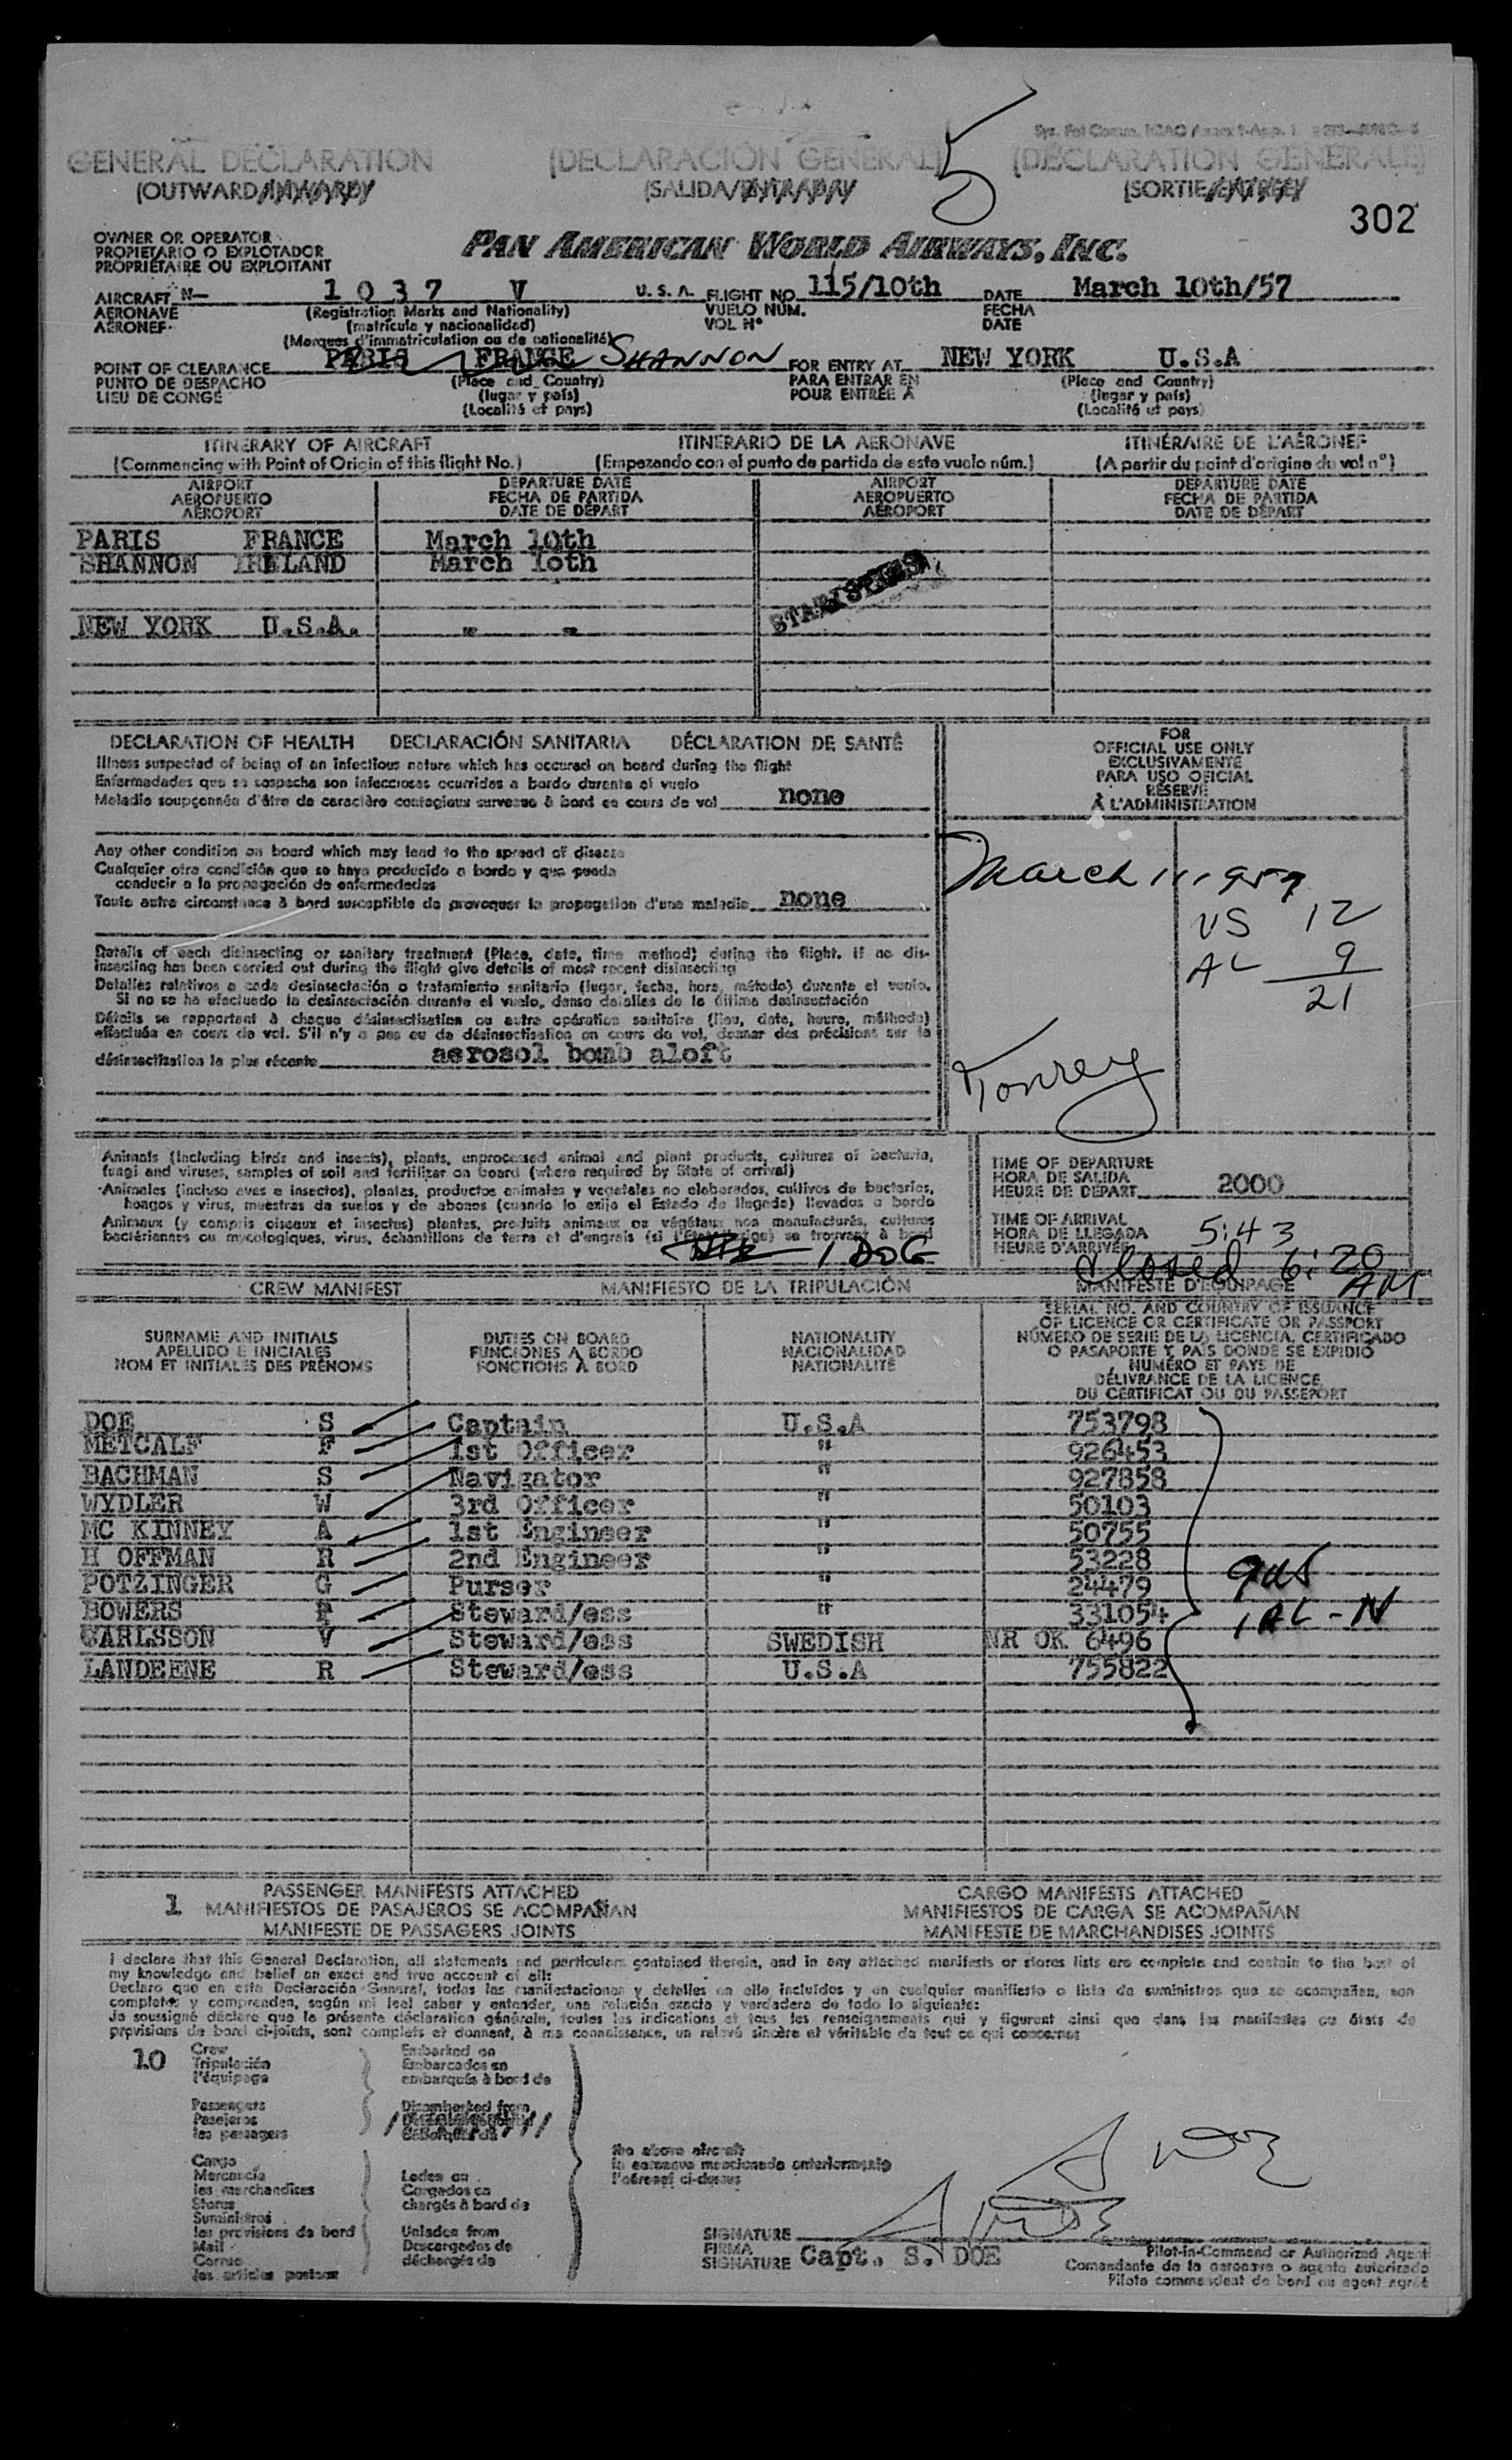 5
GENERAL DECLARATION (DECLARACIÓN GENERAL) (DÉCLARATION GÉNÉRALE)
(OUTWARD/INWARD) (SALIDA/ENTRADA) (SORTIE/ENTRÉE)
302
OWNER OR OPERATOR
PROPIETARIO O EXPLOTADOR
PROPRIÉTAIRE OU EXPLOITANT
PAN AMERICAN WORLD AIRWAYS, INC.
AIRCRAFT N— 1 0 3 7 V U. S. A. FLIGHT NO 115/10th DATE March 10th/57
AERONAVE (Registration Marks and Nationality) VUELO NÚM. FECHA
AÉRONEF (matrícula y nacionalidad) VOL Nº DATE
(Marques d'immatriculation ou de nationalité)
POINT OF CLEARANCE PARIS FRANCE SHANNON FOR ENTRY AT NEW YORK U.S.A
PUNTO DE DESPACHO (Place and Country) PARA ENTRAR EN (Place and Country)
LIEU DE CONGÉ (lugar y país) POUR ENTRÉE À (lugar y país)
(Localité et pays) (Localité et pays)
ITINERARY OF AIRCRAFT ITINERARIO DE LA AERONAVE ITINÉRAIRE DE L'AÉRONEF
(Commencing with Point of Origin of this flight No.) (Empezando con el punto de partida de este vuelo núm.) (A partir du point d'origine du vol nº)
AIRPORT DEPARTURE DATE AIRPORT DEPARTURE DATE
AEROPUERTO FECHA DE PARTIDA AEROPUERTO FECHA DE PARTIDA
AÉROPORT DATE DE DÉPART AÉROPORT DATE DE DÉPART
PARIS FRANCE March 10th
SHANNON IRELAND March 10th
STATISTICS
NEW YORK U.S.A. " "
DECLARATION OF HEALTH DECLARACIÓN SANITARIA DÉCLARATION DE SANTÉ
Illness suspected of being of an infectious nature which has occured on board during the flight
Enfermedades que se sospecha son infecciosas ocurridas a bordo durante el vuelo
Maladie soupçonnée d'être de caractère contagieux survenue à bord en cours de vol none
Any other condition on board which may lead to the spread of disease
Cualquier otra condición que se haya producido a bordo y que pueda
conducir a la propagación de enfermedades
Toute autre circonstance à bord susceptible de provoquer la propagation d'une maladie none
Details of each disinsecting or sanitary treatment (Place, date, time method) during the flight. If no dis-
insecting has been carried out during the flight give details of most recent disinsecting
Detalles relativos a cada desinsectación o tratamiento sanitario (lugar, fecha, hora, método) durante el vuelo.
Si no se ha efectuado la desinsectación durante el vuelo, danse detalles de la última desinsectación
Détails se rapportant à chaque désinsectisation ou autre opération sanitaire (lieu, date, heure, méthode)
effectuée en cours de vol. S'il n'y a pas eu de désinsectisation en cours de vol, donner des précisions sur la
désinsectisation la plus récente aerosol bomb aloft
FOR
OFFICIAL USE ONLY
EXCLUSIVAMENTE
PARA USO OFICIAL
RÉSERVÉ
À L'ADMINISTRATION
March 11 1957
US 12
AL 9
21
Animals (including birds and insects), plants, unprocessed animal and plant products, cultures of bacteria,
fungi and viruses, samples of soil and fertilizer on board (where required by State of arrival)
Animales (incluso aves e insectos), plantas, productos animales y vegetales no elaborados, cultivos de bacterias,
hongos y virus, muestras de suelos y de abonos (cuando lo exija el Estado de llegada) llevados a bordo
Animaux (y compris oiseaux et insectes) plantes, produits animaux ou végétaux non manufacturés, cultures
bactériennes ou mycologiques, virus, échantillons de terre et d'engrais (si l'État l'exige) se trouvant à bord
1 DOG
TIME OF DEPARTURE
HORA DE SALIDA
HEURE DE DÉPART 2000
TIME OF ARRIVAL
HORA DE LLEGADA 5:43
HEURE D'ARRIVÉE
closed 6:20 AM
CREW MANIFEST MANIFIESTO DE LA TRIPULACIÓN MANIFESTE D'ÉQUIPAGE
SURNAME AND INITIALS DUTIES ON BOARD NATIONALITY
APELLIDO E INICIALES FUNCIONES A BORDO NACIONALIDAD
NOM ET INITIALES DES PRÉNOMS FONCTIONS À BORD NATIONALITÉ
SERIAL NO. AND COUNTRY OF ISSUANCE
OF LICENCE OR CERTIFICATE OR PASSPORT
NÚMERO DE SERIE DE LA LICENCIA, CERTIFICADO
O PASAPORTE Y PAÍS DONDE SE EXPIDIÓ
NUMÉRO ET PAYS DE
DÉLIVRANCE DE LA LICENCE
DU CERTIFICAT OU DU PASSEPORT
DOE S Captain U.S.A 753798
METCALF F 1st Officer " 926453
BACHMAN S Navigator " 927858
WYDLER W 3rd Officer " 50103
MC KINNEY A 1st Engineer " 50755
H OFFMAN R 2nd Engineer " 53228
POTZINGER G Purser " 24479
BOWERS P Steward/ess " 331054
CARLSSON V Steward/ess SWEDISH NR OK 6496
LANDEENE R Steward/ess U.S.A 755822
9 US
1 AL - N
PASSENGER MANIFESTS ATTACHED CARGO MANIFESTS ATTACHED
1 MANIFIESTOS DE PASAJEROS SE ACOMPAÑAN MANIFIESTOS DE CARGA SE ACOMPAÑAN
MANIFESTE DE PASSAGERS JOINTS MANIFESTE DE MARCHANDISES JOINTS
I declare that this General Declaration, all statements and particulars contained therein, and in any attached manifests or stores lists are complete and contain to the best of
my knowledge and belief an exact and true account of all:
Declaro que en esta Declaración General, todas las manifestaciones y detalles en ella incluídos y en cualquier manifiesto o lista de suministros que se acompañan, son
completos y comprenden, según mi leal saber y entender, una relación exacta y verdadera de todo lo siguiente:
Je soussigné déclare que la présente déclaration générale, toutes les indications et tous les renseignements qui y figurent ainsi que dans les manifestes ou états de
provisions de bord ci-joints, sont complets et donnent, à ma connaissance, un relevé sincère et véritable de tout ce qui concerne:
10 Crew Embarked on
Tripulación Embarcados en
l'équipage embarqués à bord de
Passengers Disembarked from
Pasajeros
les passagers
the above aircraft
la aeronave mencionada anteriormente
l'aéronef ci-dessus
Cargo
Mercancía Laden on
les marchandises Cargados en
Stores chargés à bord de
Suministros
les provisions de bord Unladen from
Mail Descargados de
Correo déchargés de
les articles postaux
S DOE
SIGNATURE S DOE
FIRMA
SIGNATURE Capt. S. DOE
Pilot-in-Command or Authorized Agent
Comandante de la aeronave o agente autorizado
Pilote commandant de bord ou agent agréé